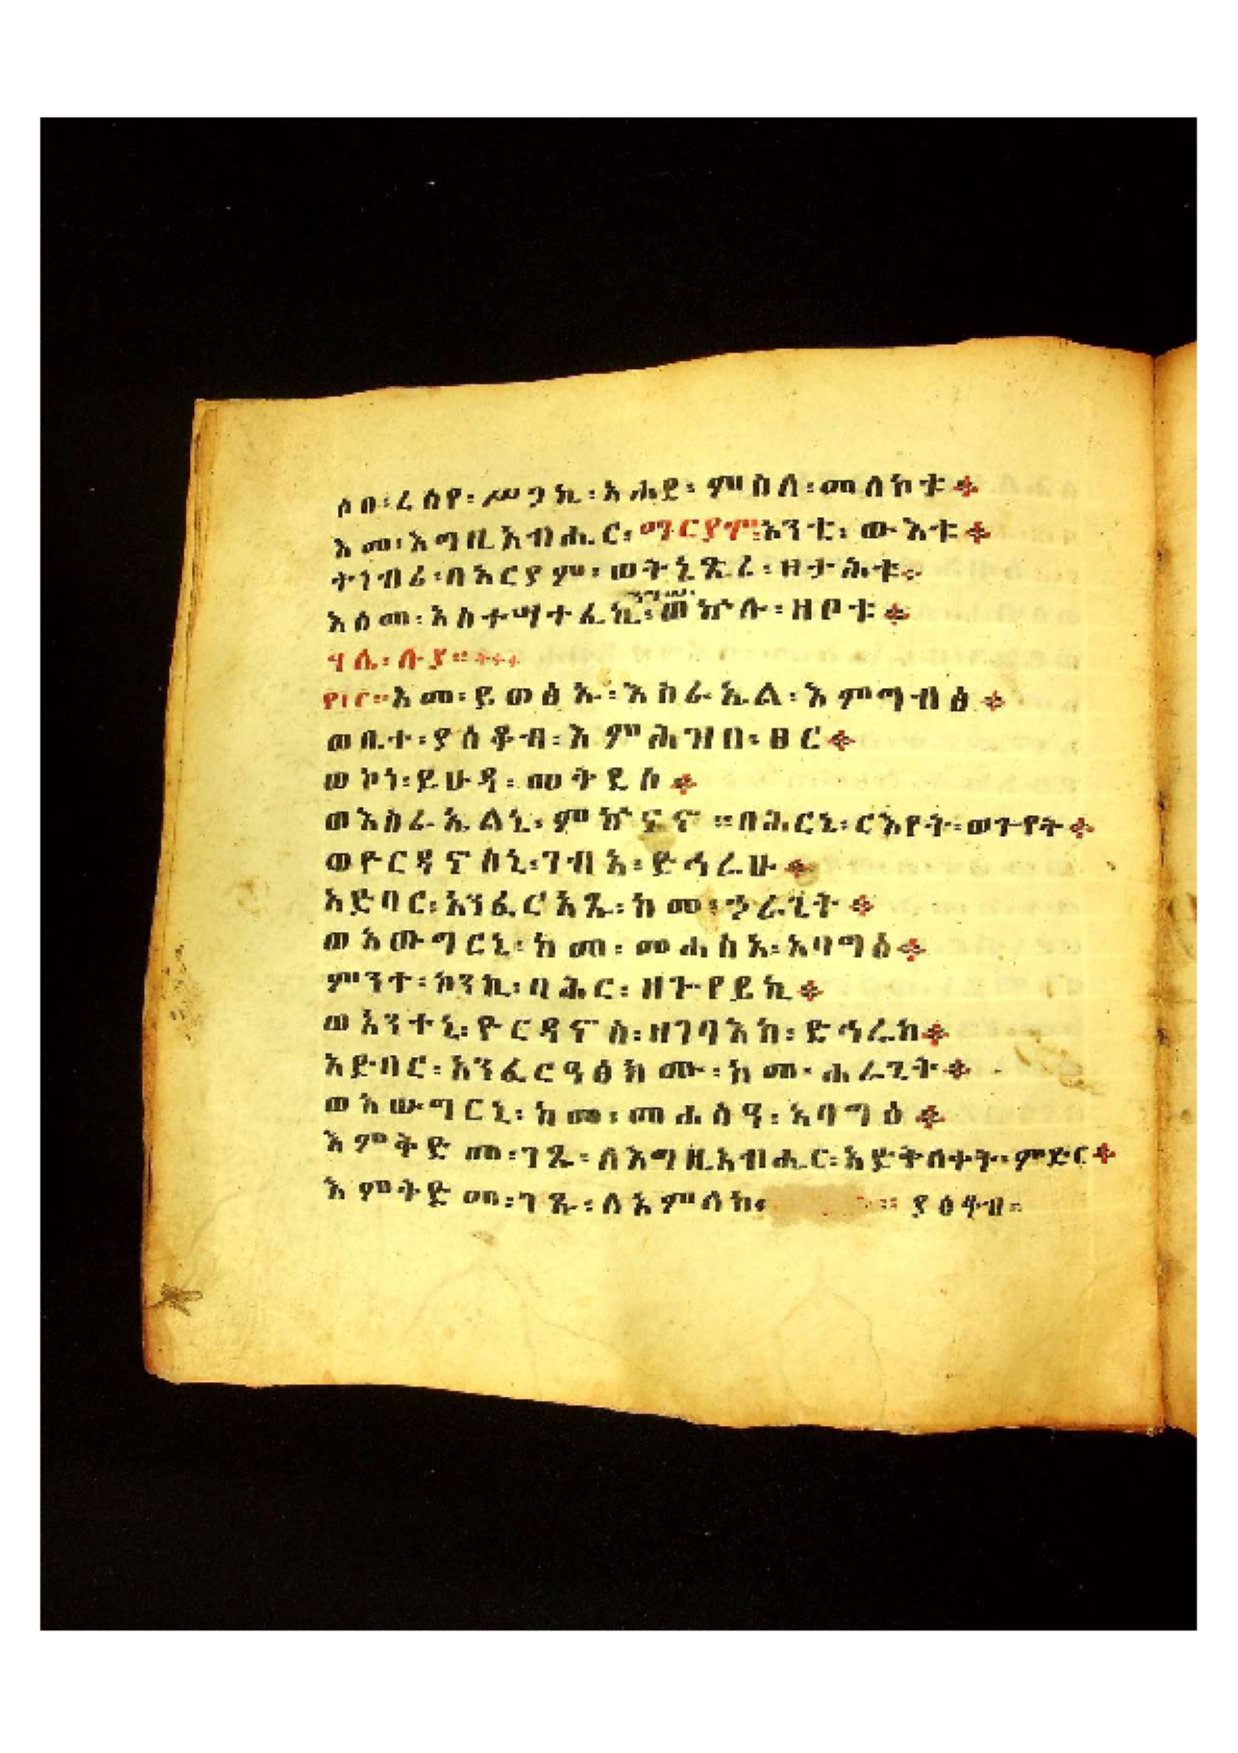 ሶበ፡ረሰየ፡ሥጋኪ፡አሐደ፡ምስለ፡መለኮቱ።
እመ፡እግዚአብሔር፡ማርያም፡አንቲ፡ውእቱ።
ትነብሪ፡በአርያም፡ወትኔጽሪ፡ዘታሕቱ።
እስመ፡አስተማተፈኪ፡ወኵሉ፡ዘቦቱ።
ሃሌ፡ሉያ።
አመ፡ይወፅኡ፡እስራኤል፡እምግብፅ።
ወቤተ፡ያሰቆብ፡እምሕዝበ፡ፀር።
ወኮነ፡ይሁዳ፡መቅደሶ።
ወእስራኤልኒ፡ምኵናኖ።በሕርኒ፡ርእየት፡ወጐየት።
ወዮርዳኖስኒ፡ገብአ፡ድኅሬሁ።
አድባር፡አንፈርአጹ፡ከመ፡ኃራጊት።
ወአውግርኒ፡ከመ፡መሐስአ፡አባግዕ።
ምንተ፡ኮንኪ፡ባሕር፡ዘጐየይኪ።
ወአንተኒ፡ዮርዳኖስ፡ዘገባእከ፡ድኅሬከ።
አድባር፡አንፈርዓፅክሙ፡ከመ፡ሐራጊት።
ወአውግርኒ፡ከመ፡መሐስዓ፡አባግዕ።
እምቅድመ፡ገጹ፡ለእግዚአብሔር፡አድቅለቀት፡ምድር።
እምቅድመ፡ገጹ፡ለአምላከ፡ ያዕቆብ።